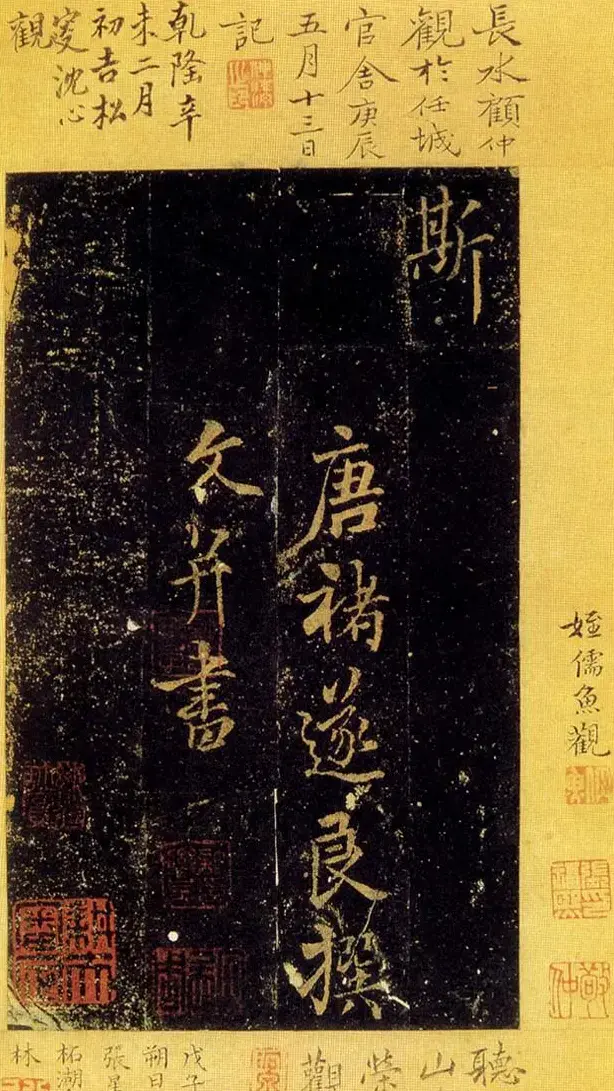 長水顧仲
觀於任城
官舍庚辰
五月十三日
記
乾隆辛
未二月
初吉松
沈心
觀
斯
唐褚遂良撰
文并書
姪儒魚觀
聽
山
觀
戊子
朔日
張星
柘湖
林